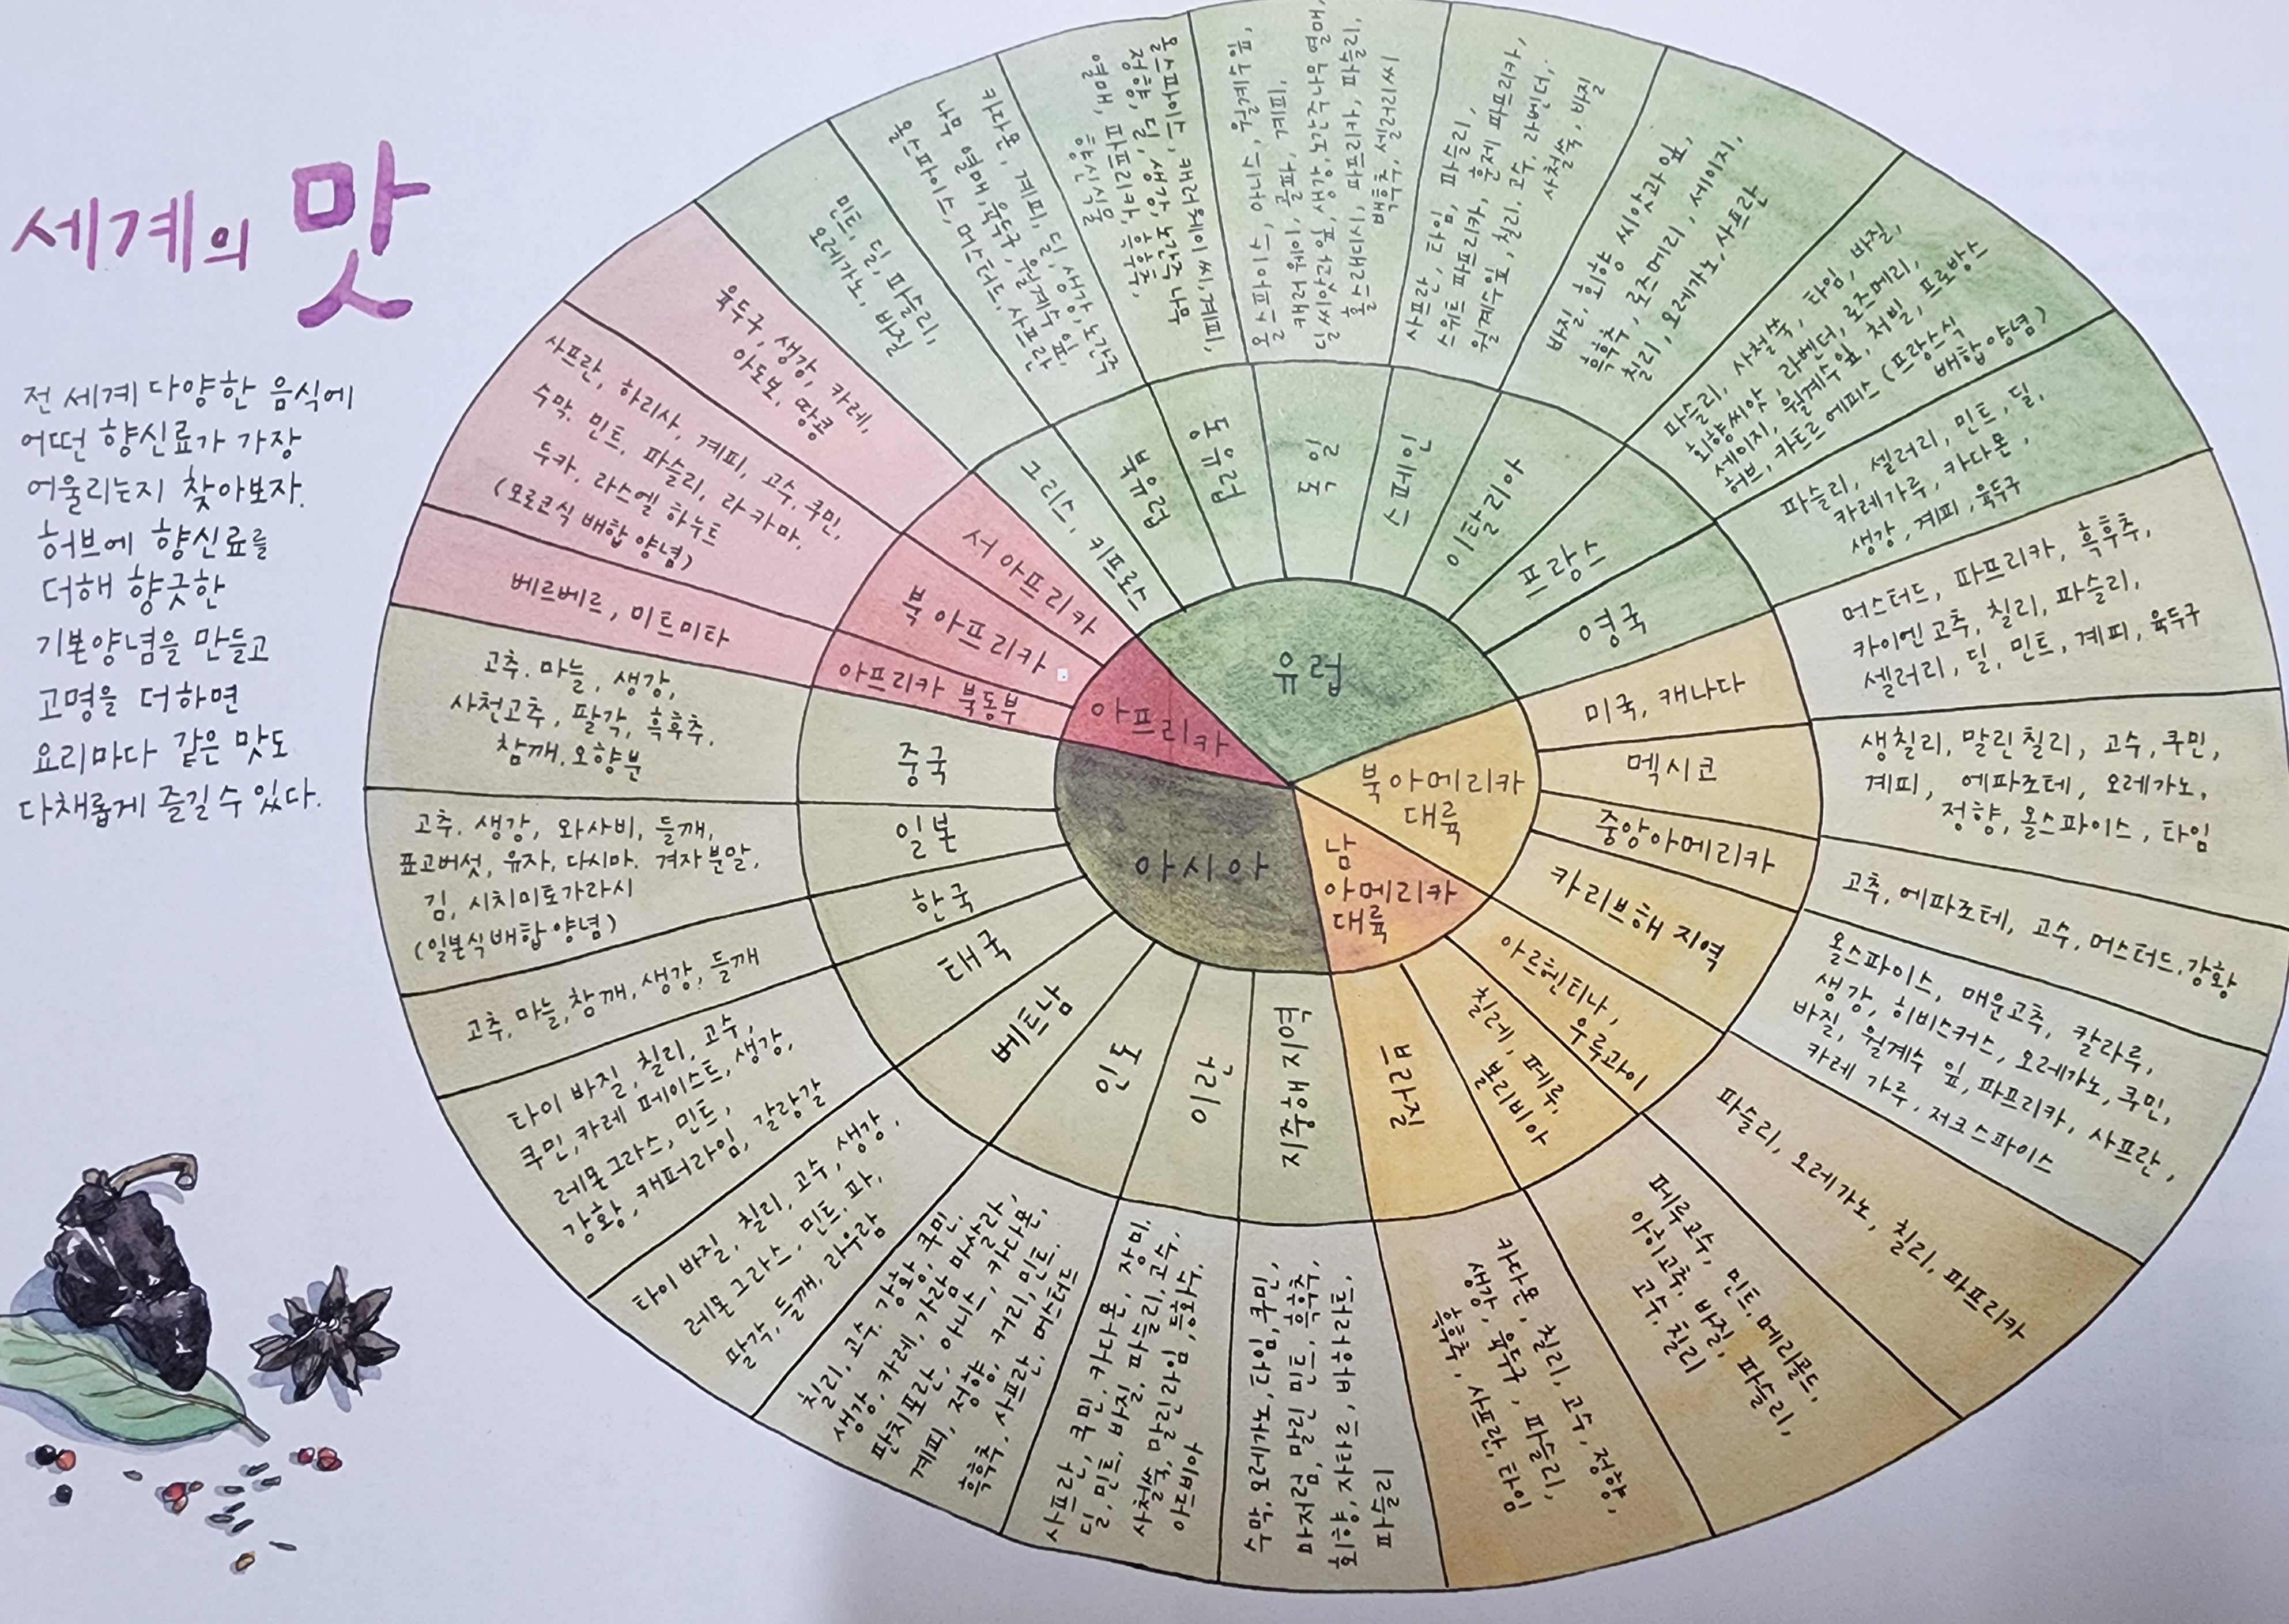 세계의 맛
전 세계 다양한 음식에
어떤 향신료가 가장
어울리는지 찾아보자.
허브에 향신료를
더해 향긋한
기본양념을 만들고
고명을 더하면
요리마다 같은 맛도
다채롭게 즐길 수 있다.
유럽
그리스, 키프로스
민트, 딜, 파슬리,
오레가노, 바질
북유럽
카다몬, 계피, 딜, 생강, 노간주
나무 열매, 육두구, 월계수 잎,
올스파이스, 머스터드, 사프란
동유럽
올스파이스, 캐러웨이 씨, 계피,
정향, 딜, 생강, 노간주 나무
열매, 파프리카, 흑후추,
향신식물
독일
올스파이스, 아니스, 월계수잎,
캐러웨이, 골파, 계피,
딜 씨앗과 잎, 생강, 노간주나무 열매,
홀스래디시, 파프리카, 파슬리,
백후추, 셀러리씨
스페인
사프란, 타임, 파슬리,
스위트 파프리카, 훈제 파프리카,
월계수잎, 칠리, 고수, 라벤더,
사철쑥, 바질
이탈리아
바질, 회향 씨앗과 잎,
흑후추, 로즈메리, 세이지,
칠리, 오레가노, 사프란
프랑스
파슬리, 사철쑥, 타임, 바질,
회향씨앗, 라벤더, 로즈메리,
세이지, 월계수잎, 처빌, 프로방스
허브, 카트르 에피스 (프랑스식
배합 양념)
영국
파슬리, 셀러리, 민트, 딜,
카레가루, 카다몬,
생강, 계피, 육두구
북아메리카
대륙
미국, 캐나다
머스터드, 파프리카, 흑후추,
카이엔고추, 칠리, 파슬리,
셀러리, 딜, 민트, 계피, 육두구
멕시코
생칠리, 말린칠리, 고수, 쿠민,
계피, 에파조테, 오레가노,
정향, 올스파이스, 타임
중앙아메리카
고추, 에파조테, 고수, 머스터드, 강황
카리브해 지역
올스파이스, 매운고추, 칼라루,
생강, 히비스커스, 오레가노, 쿠민,
바질, 월계수 잎, 파프리카, 사프란,
카레 가루, 저크스파이스
남
아메리카
대륙
아르헨티나,
우루과이
파슬리, 오레가노, 칠리, 파프리카
칠레, 페루,
볼리비아
페루고수, 민트, 메리골드,
아히고추, 바질, 파슬리,
고수, 칠리
브라질
카다몬, 칠리, 고수, 정향,
생강, 육두구, 파슬리,
흑후추, 사프란, 타임
아시아
지중해 지역
수막, 오레가노, 타임, 쿠민,
마저럼, 말린 민트, 흑후추,
회향, 자타르, 바하라트,
파슬리
이란
사프란, 쿠민, 카다몬, 장미,
딜, 민트, 바질, 파슬리, 고수,
사철쑥, 말린라임, 등화수,
아드비아
인도
칠리, 고수, 강황, 쿠민,
생강, 카레, 가람 마살라,
판치포란, 아니스, 카다몬,
계피, 정향, 커리, 민트,
흑후추, 사프란, 머스터드
베트남
타이 바질, 칠리, 고수, 생강,
레몬 그라스, 민트, 파,
팔각, 들깨, 라우람
태국
타이 바질, 칠리, 고수,
쿠민, 카레 페이스트, 생강,
레몬그라스, 민트,
강황, 캐퍼라임, 갈랑갈
한국
고추, 마늘, 참깨, 생강, 들깨
일본
고추, 생강, 와사비, 들깨,
표고버섯, 유자, 다시마, 겨자분말,
김, 시치미토가라시
(일본식배합 양념)
중국
고추, 마늘, 생강,
사천고추, 팔각, 흑후추,
참깨, 오향분
아프리카
아프리카 북동부
베르베르, 미트미타
북 아프리카
사프란, 하리사, 계피, 고수, 쿠민,
수막, 민트, 파슬리, 라 카마,
두카, 라스엘 하누트
(모로코식 배합 양념)
서 아프리카
육두구, 생강, 카레,
아도보, 땅콩